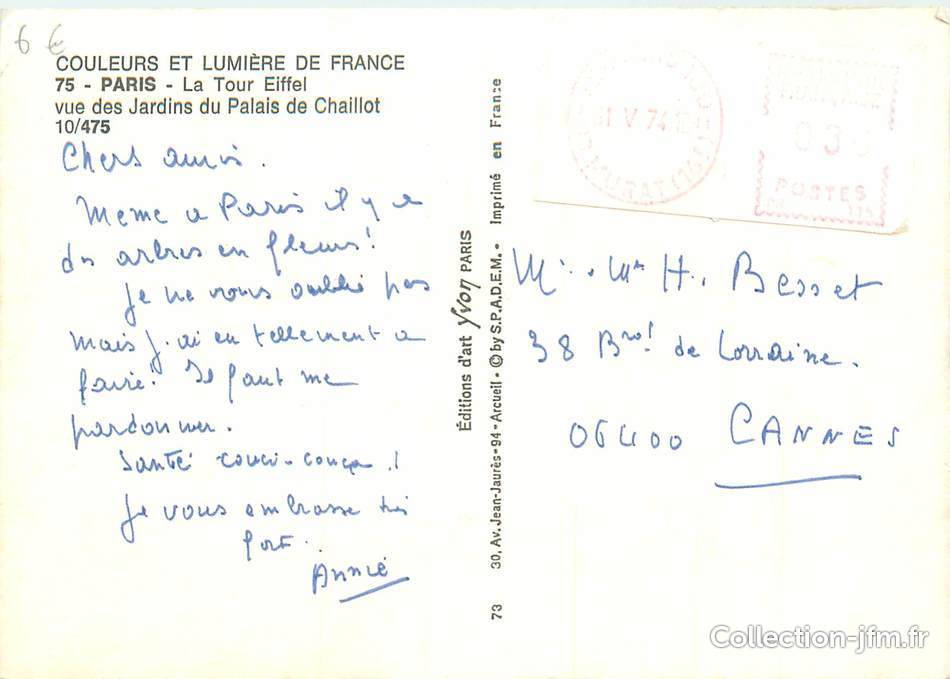 6 €
COULEURS ET LUMIÈRE DE FRANCE
75 - PARIS - La Tour Eiffel
vue des Jardins du Palais de Chaillot
10/475
Chers amis.
Meme a Paris il y a
des arbres en fleurs!
Je ne vous oublie pas
mais j'ai eu tellement a
faire! Il faut me
pardonner.
Santé couci-couça.!
Je vous embrasse très
fort..
Annie
Éditions d'art yvon PARIS
30, Av. Jean-Jaurès • 94 - Arcueil • © by S.P.A.D.E.M. • Imprimé en France
73
V 74
MURAT
POSTES
Mr. Me H. Besset
38 Bd de Lorraine.
06400 CANNES
Collection-jfm.fr